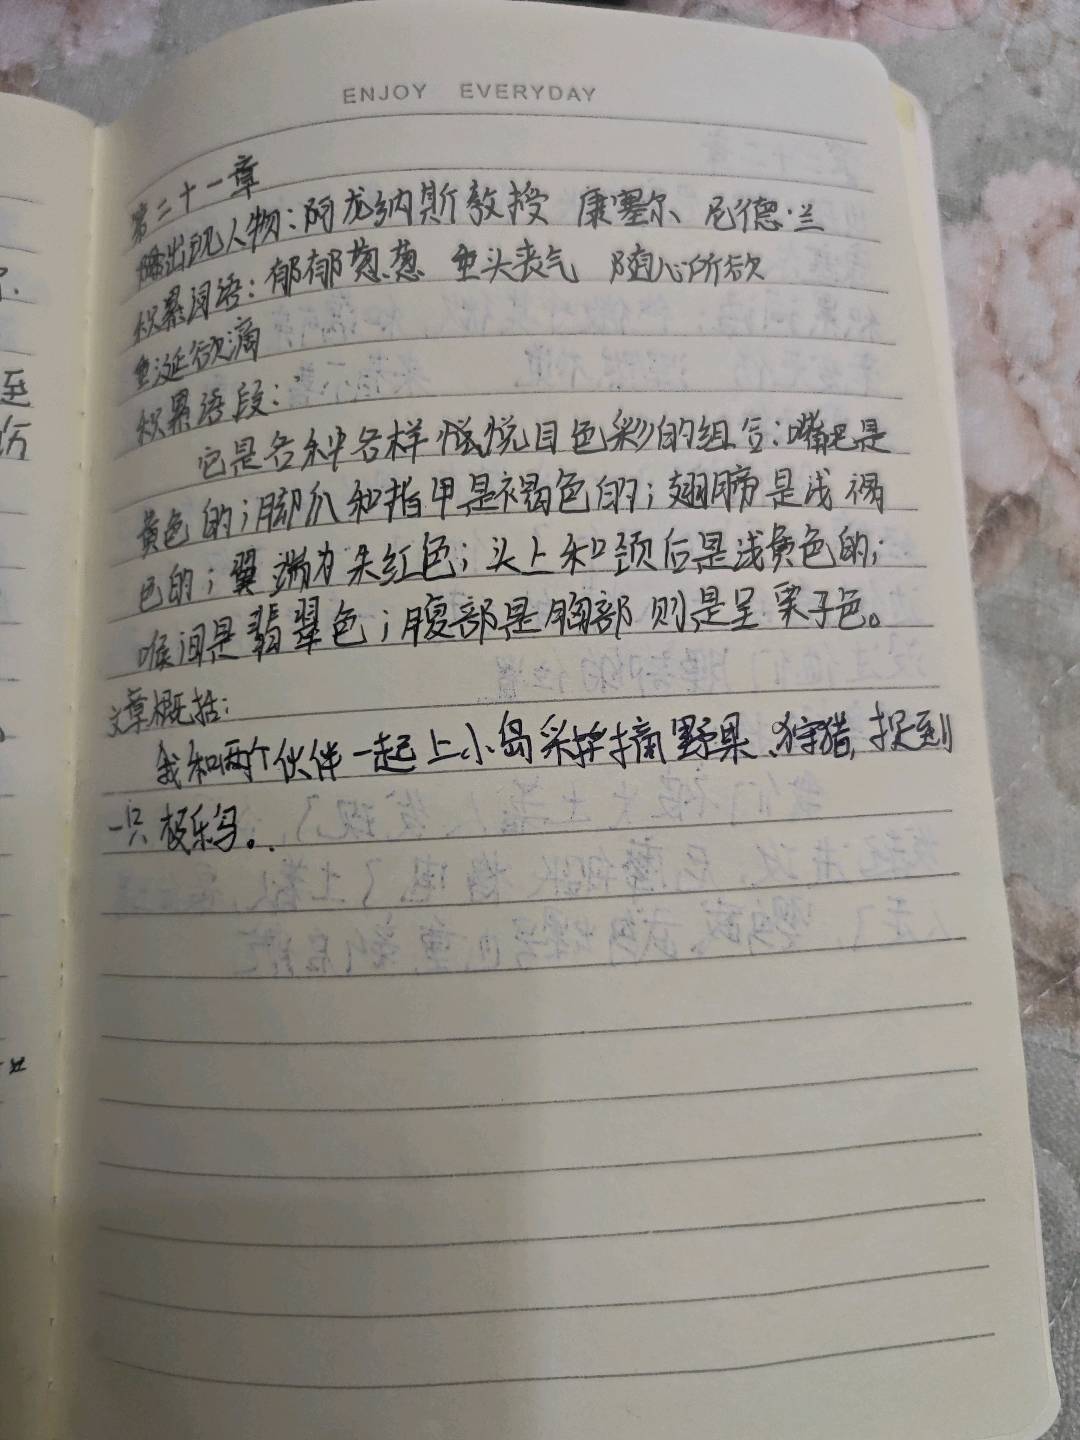 ENJOY EVERYDAY
第二十一章
出现人物：阿龙纳斯教授 康塞尔、尼德·兰
积累词语：郁郁葱葱 垂头丧气 随心所欲
垂涎欲滴
积累语段：
它是各种各样悦目色彩的组合：嘴巴是
黄色的；脚爪和指甲是褐色的；翅膀是浅褐
色的；翼端为朱红色；头上和颈后是浅黄色的；
喉间是翡翠色；腹部是胸部则是呈栗子色。
文章概括：
我和两个伙伴一起上小岛采摘野果、狩猎，捉到
一只极乐鸟。